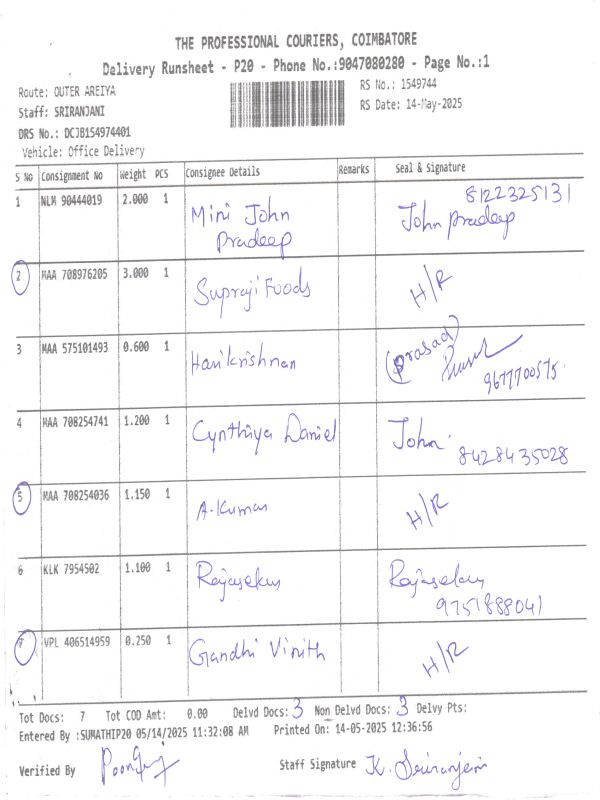 THE PROFESSIONAL COURIERS, COIMBATORE
Delivery Runsheet - P20 - Phone No.:9047080280 - Page No.:1
Route: OUTER AREIYA RS No.: 1549744
Staff: SRIRANJANI RS Date: 14-May-2025
DRS No.: DCJB154974401
Vehicle: Office Delivery
S No Consignment No Weight PCS Consignee Details Remarks Seal & Signature
1 NLM 90444019 2.000 1 Mini John Pradeep John Pradeep 8122325131
2 MAA 708976205 3.000 1 Supraji Foods H/R
3 MAA 575101493 0.600 1 Harikrishnan (Prasad) 9677700575
4 MAA 708254741 1.200 1 Cynthiya Daniel John 8428435028
5 MAA 708254036 1.150 1 A.Kumar H/R
6 KLK 7954502 1.100 1 Rajasekar Rajasekar 9751888041
7 VPL 406514959 0.250 1 Gandhi Vinith H/R
Tot Docs: 7 Tot COD Amt: 0.00 Delvd Docs: 3 Non Delvd Docs: 3 Delvy Pts:
Entered By :SUMATHIP20 05/14/2025 11:32:08 AM Printed On: 14-05-2025 12:36:56
Verified By Staff Signature K. Sriranjani